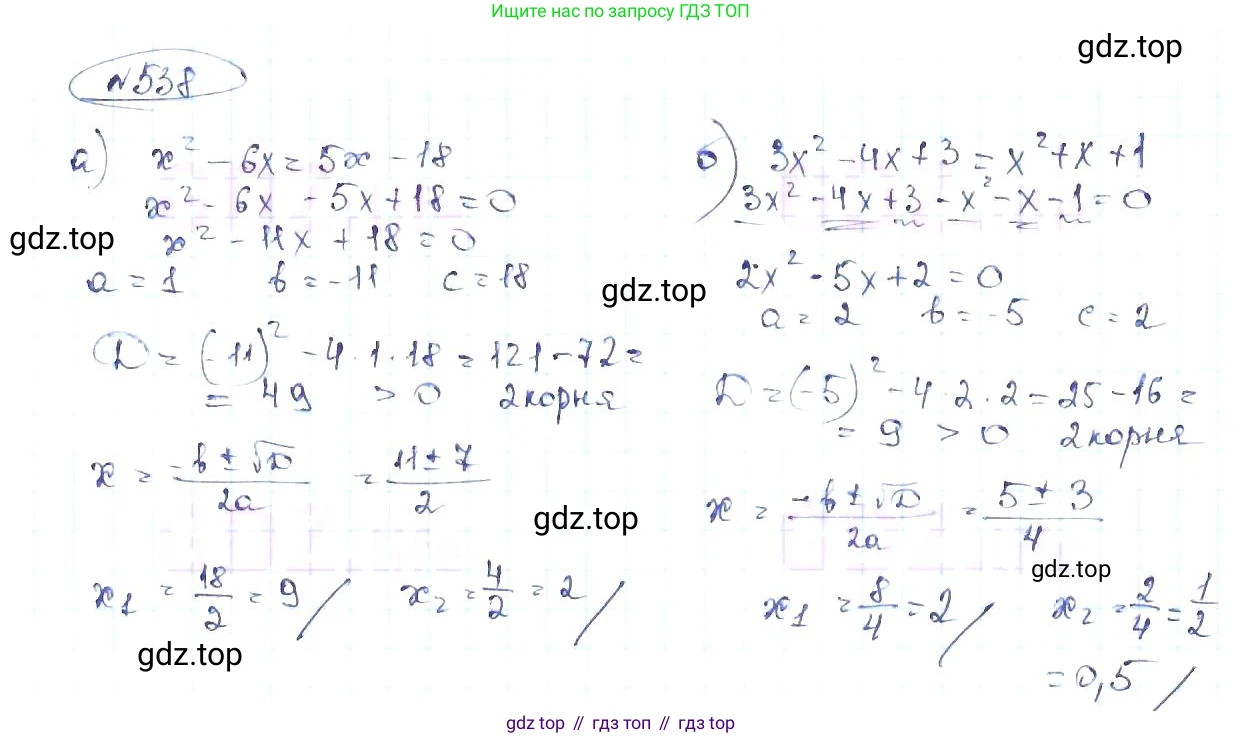 Ищите нас по запросу ГДЗ ТОП
gdz.top
№538
а) x² - 6x = 5x - 18
x² - 6x - 5x + 18 = 0
gdz.top
x² - 11x + 18 = 0
a = 1 b = -11 c = 18
D = (-11)² - 4·1·18 = 121 - 72 =
= 49 > 0 2 корня
x = (-b ± √D)/2a = (11 ± 7)/2
gdz.top
x₁ = 18/2 = 9 / x₂ = 4/2 = 2 /
gdz.top
б) 3x² - 4x + 3 = x² + x + 1
3x² - 4x + 3 - x² - x - 1 = 0
gdz.top
2x² - 5x + 2 = 0
a = 2 b = -5 c = 2
D = (-5)² - 4·2·2 = 25 - 16 =
= 9 > 0 2 корня
x = (-b ± √D)/2a = (5 ± 3)/4
gdz.top
x₁ = 8/4 = 2 / x₂ = 2/4 = 1/2
= 0,5 /
gdz top // гдз топ // gdz top